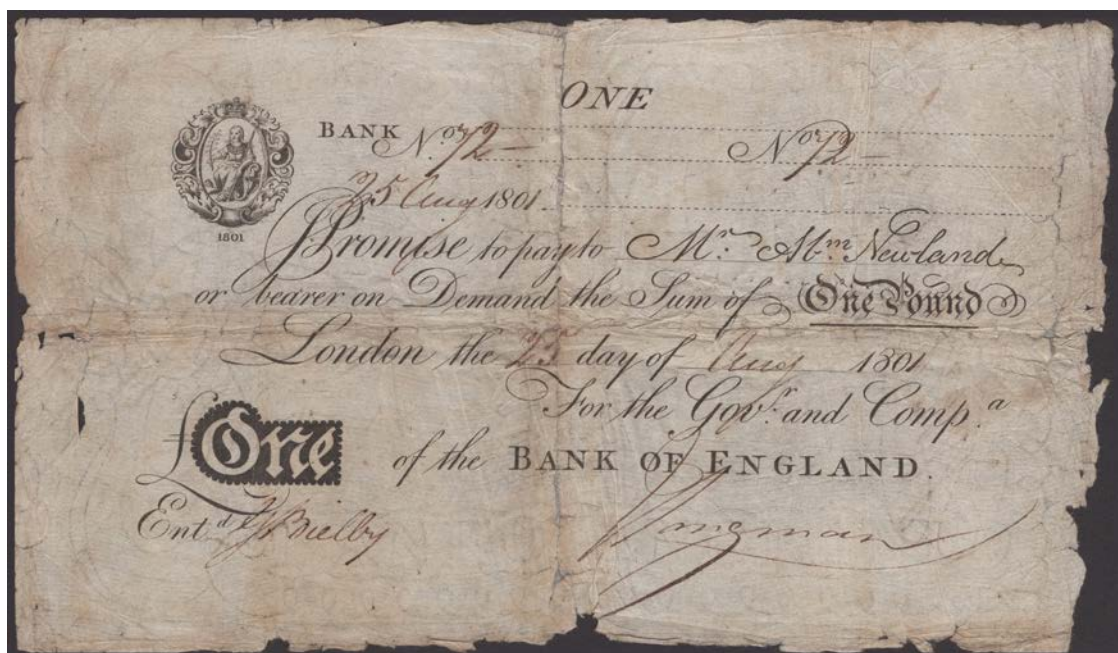 ONE
BANK No. 72 No. 72
25 Aug 1801
1801
Promise to pay to Mr. Abm Newland
or bearer on Demand the Sum of One Pound
London the 25 day of Aug 1801
For the Govr. and Compa.
£One of the BANK OF ENGLAND.
Entd J Bielby